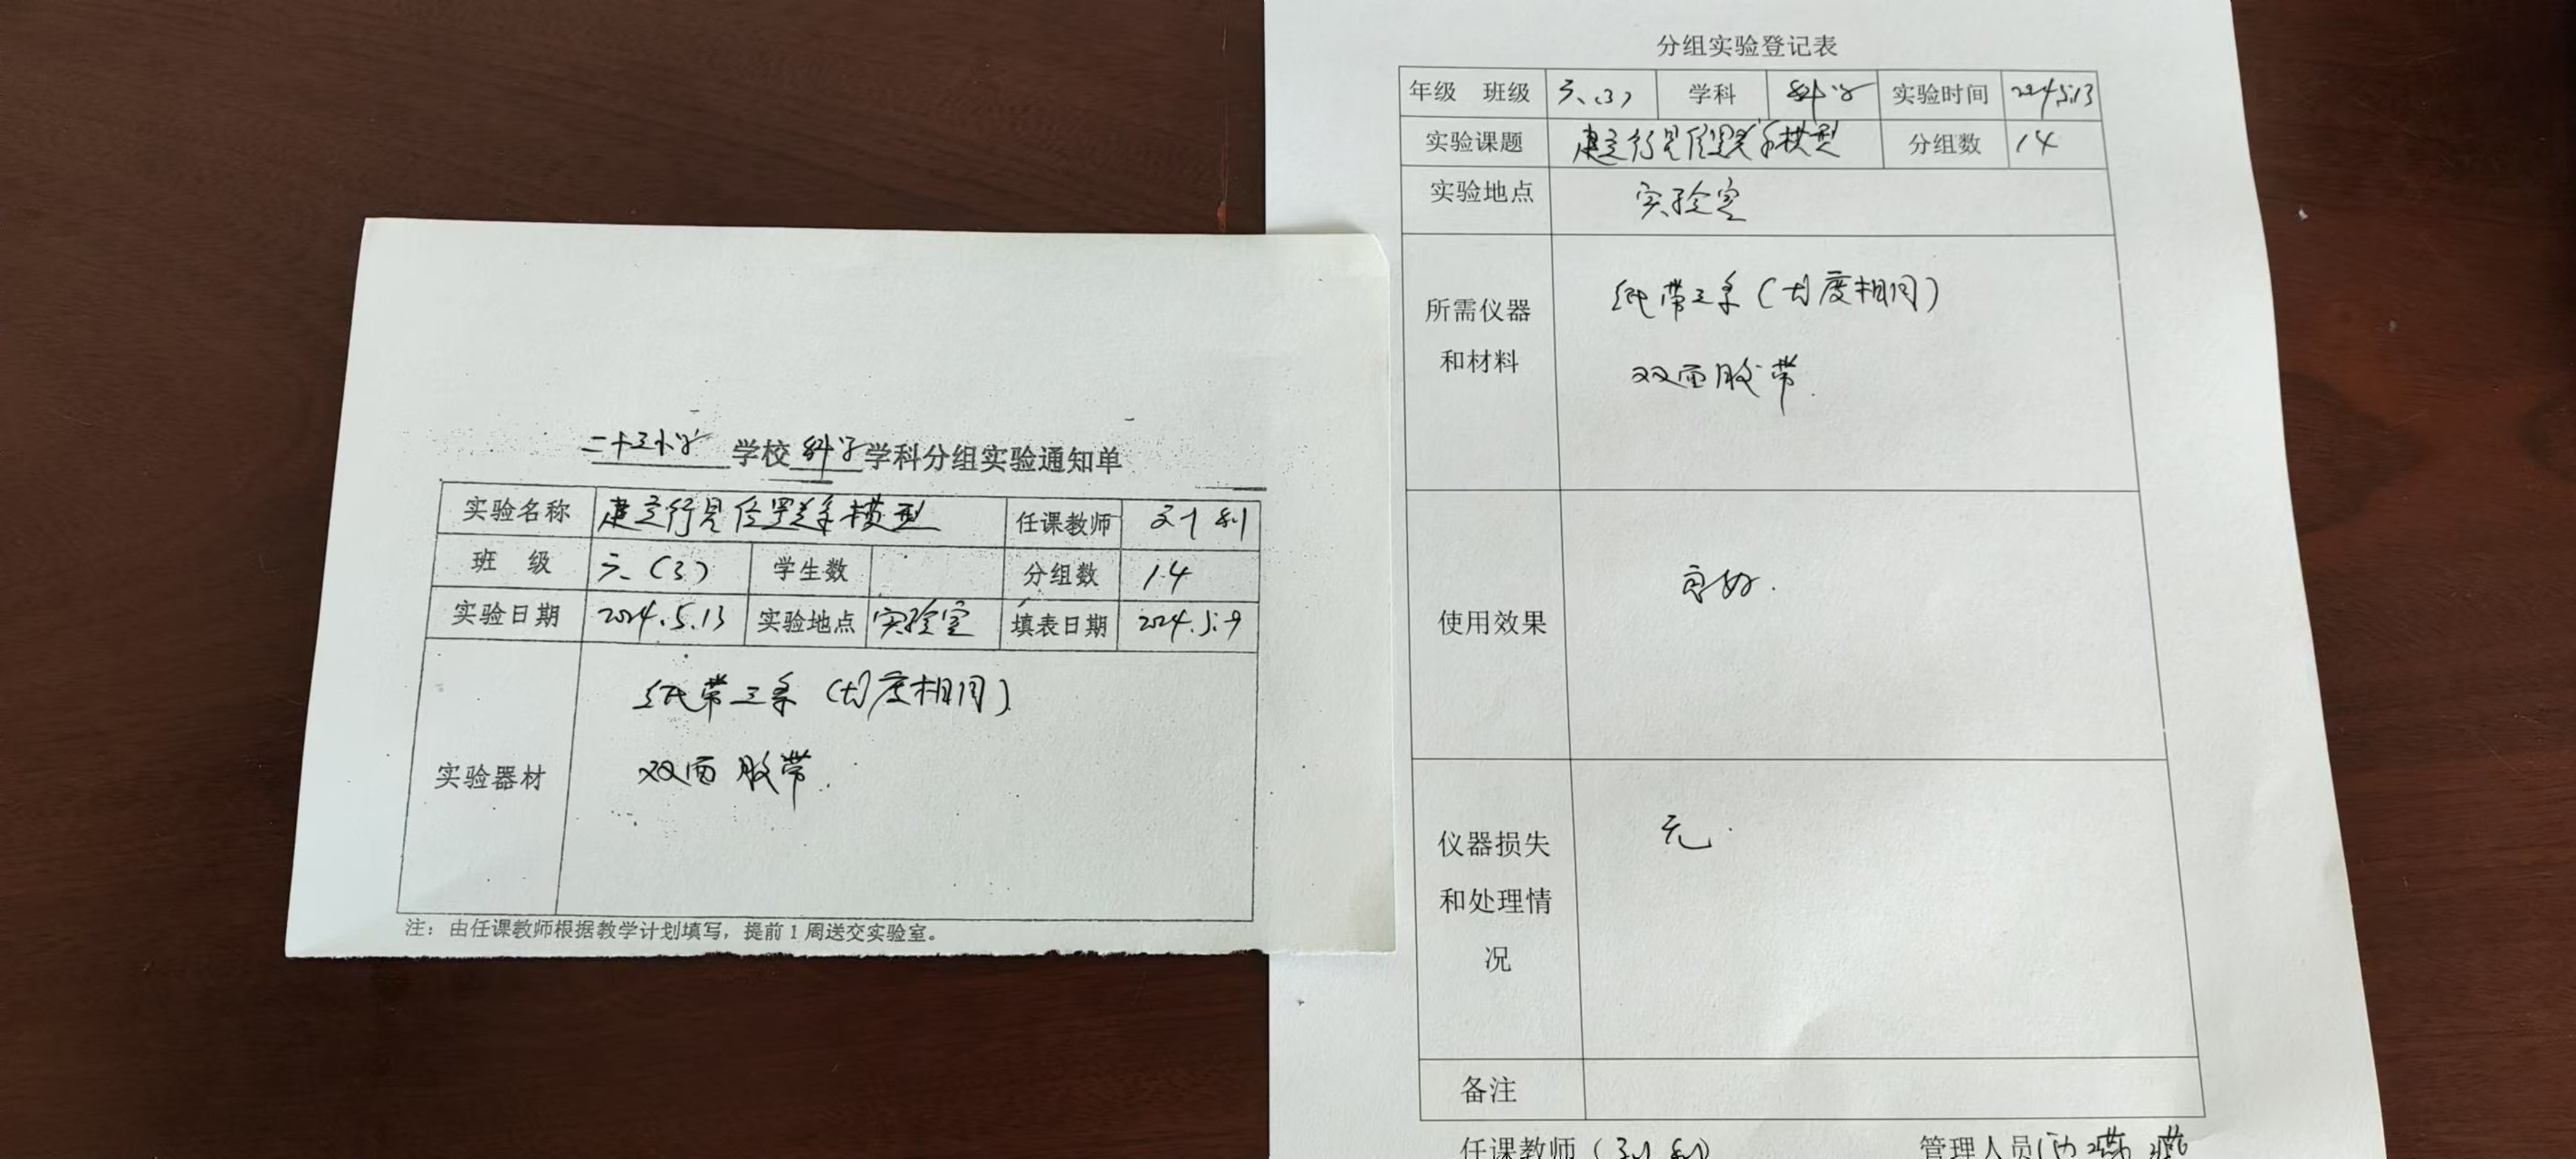 二十三小学 学校 科学 学科分组实验通知单
实验名称 建立行星位置关系模型 任课教师 刘利
班 级 六(3) 学生数 分组数 14
实验日期 2024.5.13 实验地点 实验室 填表日期 2024.5.9
实验器材
纸带三条(长度相同)
双面胶带.
注：由任课教师根据教学计划填写，提前1周送交实验室。
分组实验登记表
年级 班级 六(3) 学科 科学 实验时间 2024.5.13
实验课题 建立行星位置关系模型 分组数 14
实验地点 实验室
所需仪器
和材料
纸带三条(长度相同)
双面胶带.
使用效果 良好.
仪器损失
和处理情
况
无.
备注
任课教师（刘利） 管理人员（